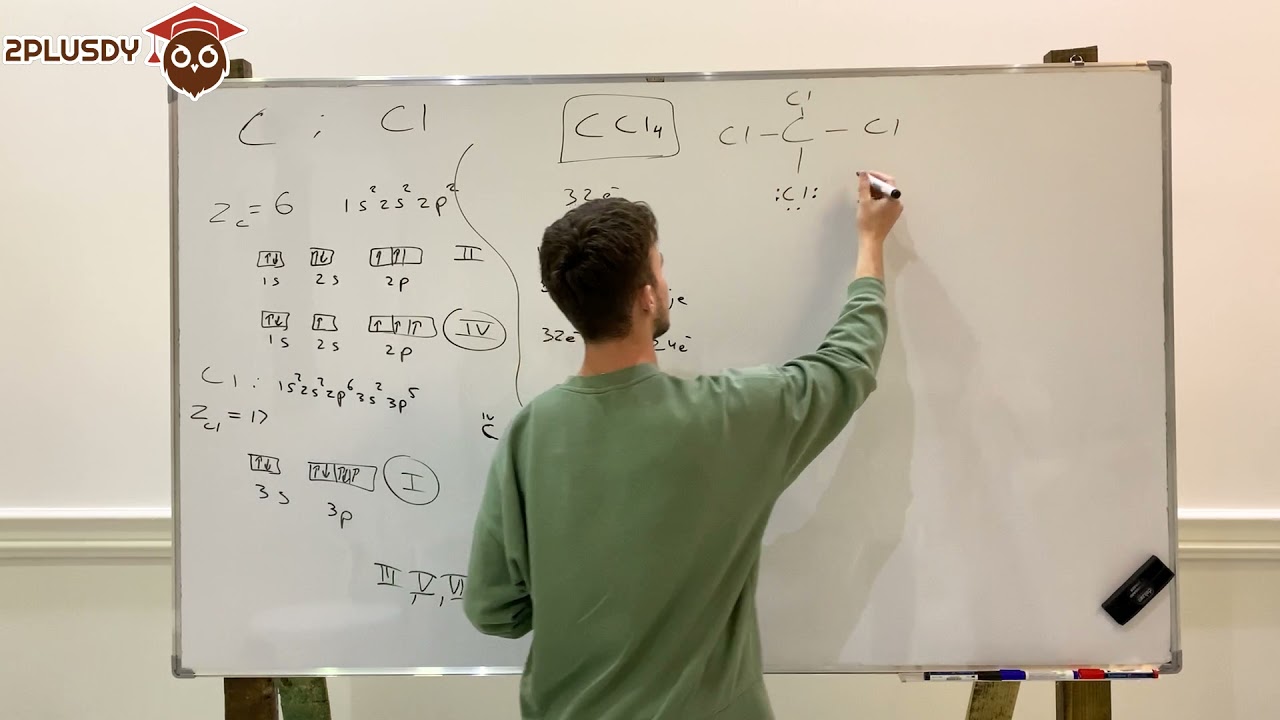 2PLUSDY
C ; Cl
Z_C = 6 1s² 2s² 2p²
↑↓ ↑↓ ↑ ↑ II
1s 2s 2p
↑↓ ↑ ↑ ↑ ↑ IV
1s 2s 2p
Cl : 1s² 2s² 2p⁶ 3s² 3p⁵
Z_Cl = 17
↑↓ ↑↓ ↑↓ ↑ I
3s 3p
III, V, VI
CCl₄
32e⁻
32e⁻ 24e⁻
IV
C
Cl
Cl – C – Cl
|
:Cl: